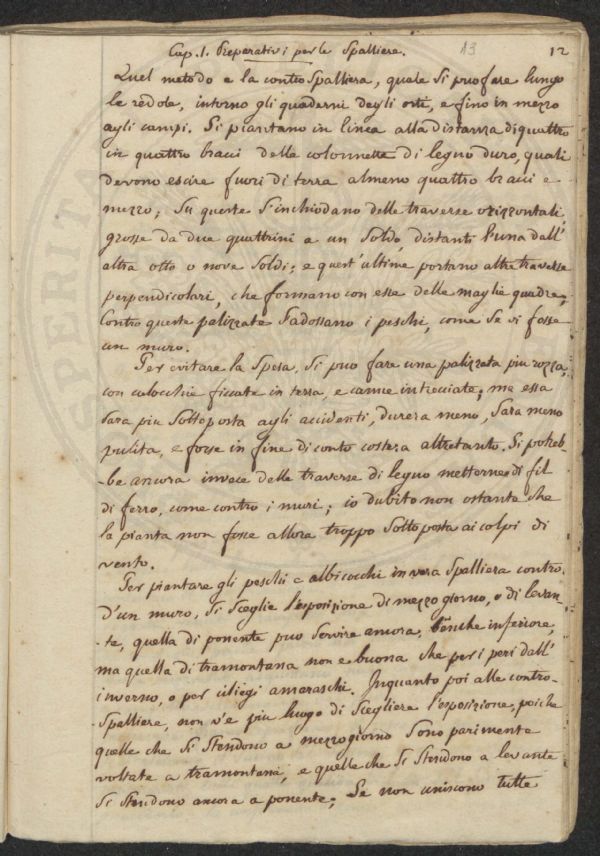 Cap. 1. Preparativi per le Spalliere. 13 12
Quel metodo e la contro Spalliera, quale Si puo fare lungo
le redole, intorno gli quaderni degli orti, e fino in mezzo
agli campi. Si piantano in linea alla distanza di quattro
in quattro bracci delle colonnette di legno duro, quali
devono escire fuori di terra almeno quattro bracci e
mezzo; Su queste S'inchiodano delle traverse orizzontali,
grosse da due quattrini a un Soldo, distanti l'una dall'
altra otto o nove Soldi; e quest'ultime portano altre traverse
perpendicolari, che formano con esse delle maglie quadre.
Contro queste palizzate S'adossano i peschi, come Se vi fosse
un muro.
Per evitare la Spesa, Si puo fare una palizzata piu rozza,
con calocchie ficcate in terra, e canne intrecciate; ma essa
Sara piu Sottoposta agli accidenti, durera meno, Sara meno
pulita, e forse in fine di conto costera altretanto. Si potreb-
be ancora invece delle traverse di legno metterne di fil
di ferro, come contro i muri; io dubito non ostante che
la pianta non fosse allora troppo Sottoposta ai colpi di
vento.
Per piantare gli peschi e albicocchi in vera Spalliera contro
d'un muro, Si Sceglie l'esposizione di mezzo giorno, o di levan-
te, quella di ponente puo Servire ancora, benche inferiore,
ma quella di tramontana non e buona che per i peri dall'
inverno, o per ciliegi amaraschi. Inquanto poi alle contro-
Spalliere, non v'e piu luogo di Scegliere l'esposizione, poiche
quelle che Si Stendono a mezzogiorno Sono parimente
voltate a tramontana, e quelle che Si Stendono a levante
Si Stendono ancora a ponente; Se non uniscono tutte